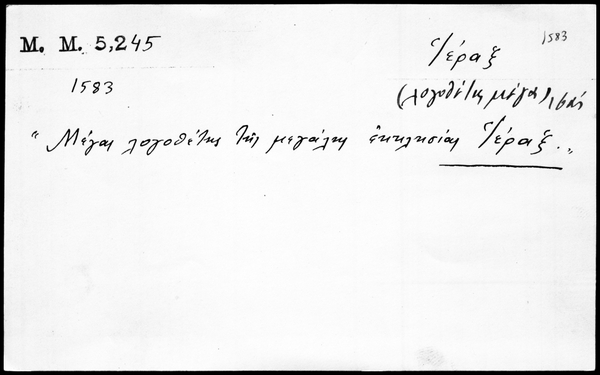 M. M. 5,245
1583
Ἱέραξ
1583
(λογοθέτης μέγας)
"Μέγας λογοθέτης τῆς μεγάλης ἐκκλησίας Ἱέραξ."